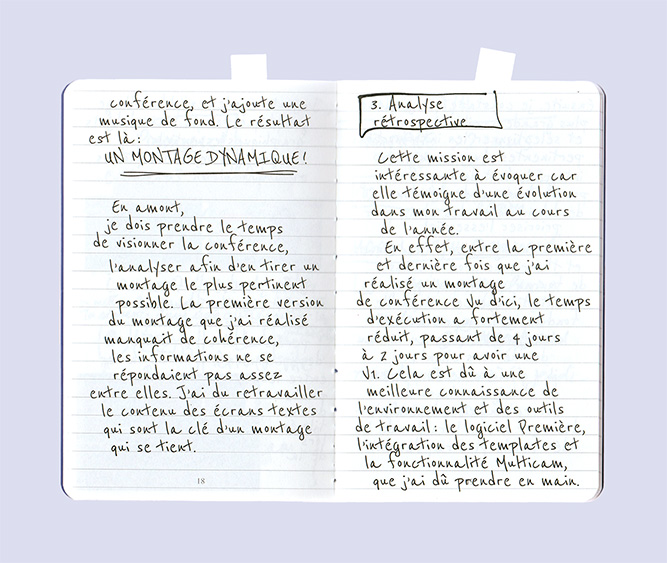 conférence, et j'ajoute une
musique de fond. Le résultat
est là :
UN MONTAGE DYNAMIQUE !
En amont,
je dois prendre le temps
de visionner la conférence,
l'analyser afin d'en tirer un
montage le plus pertinent
possible. La première version
du montage que j'ai réalisé
manquait de cohérence,
les informations ne se
répondaient pas assez
entre elles. J'ai du retravailler
le contenu des écrans textes
qui sont la clé d'un montage
qui se tient.
18
3. Analyse
rétrospective
Cette mission est
intéressante à évoquer car
elle témoigne d'une évolution
dans mon travail au cours
de l'année.
En effet, entre la première
et dernière fois que j'ai
réalisé un montage
de conférence Vu d'ici, le temps
d'exécution a fortement
réduit, passant de 4 jours
à 2 jours pour avoir une
V1. Cela est dû à une
meilleure connaissance de
l'environnement et des outils
de travail : le logiciel Première,
l'intégration des templates et
la fonctionnalité Multicam,
que j'ai dû prendre en main.